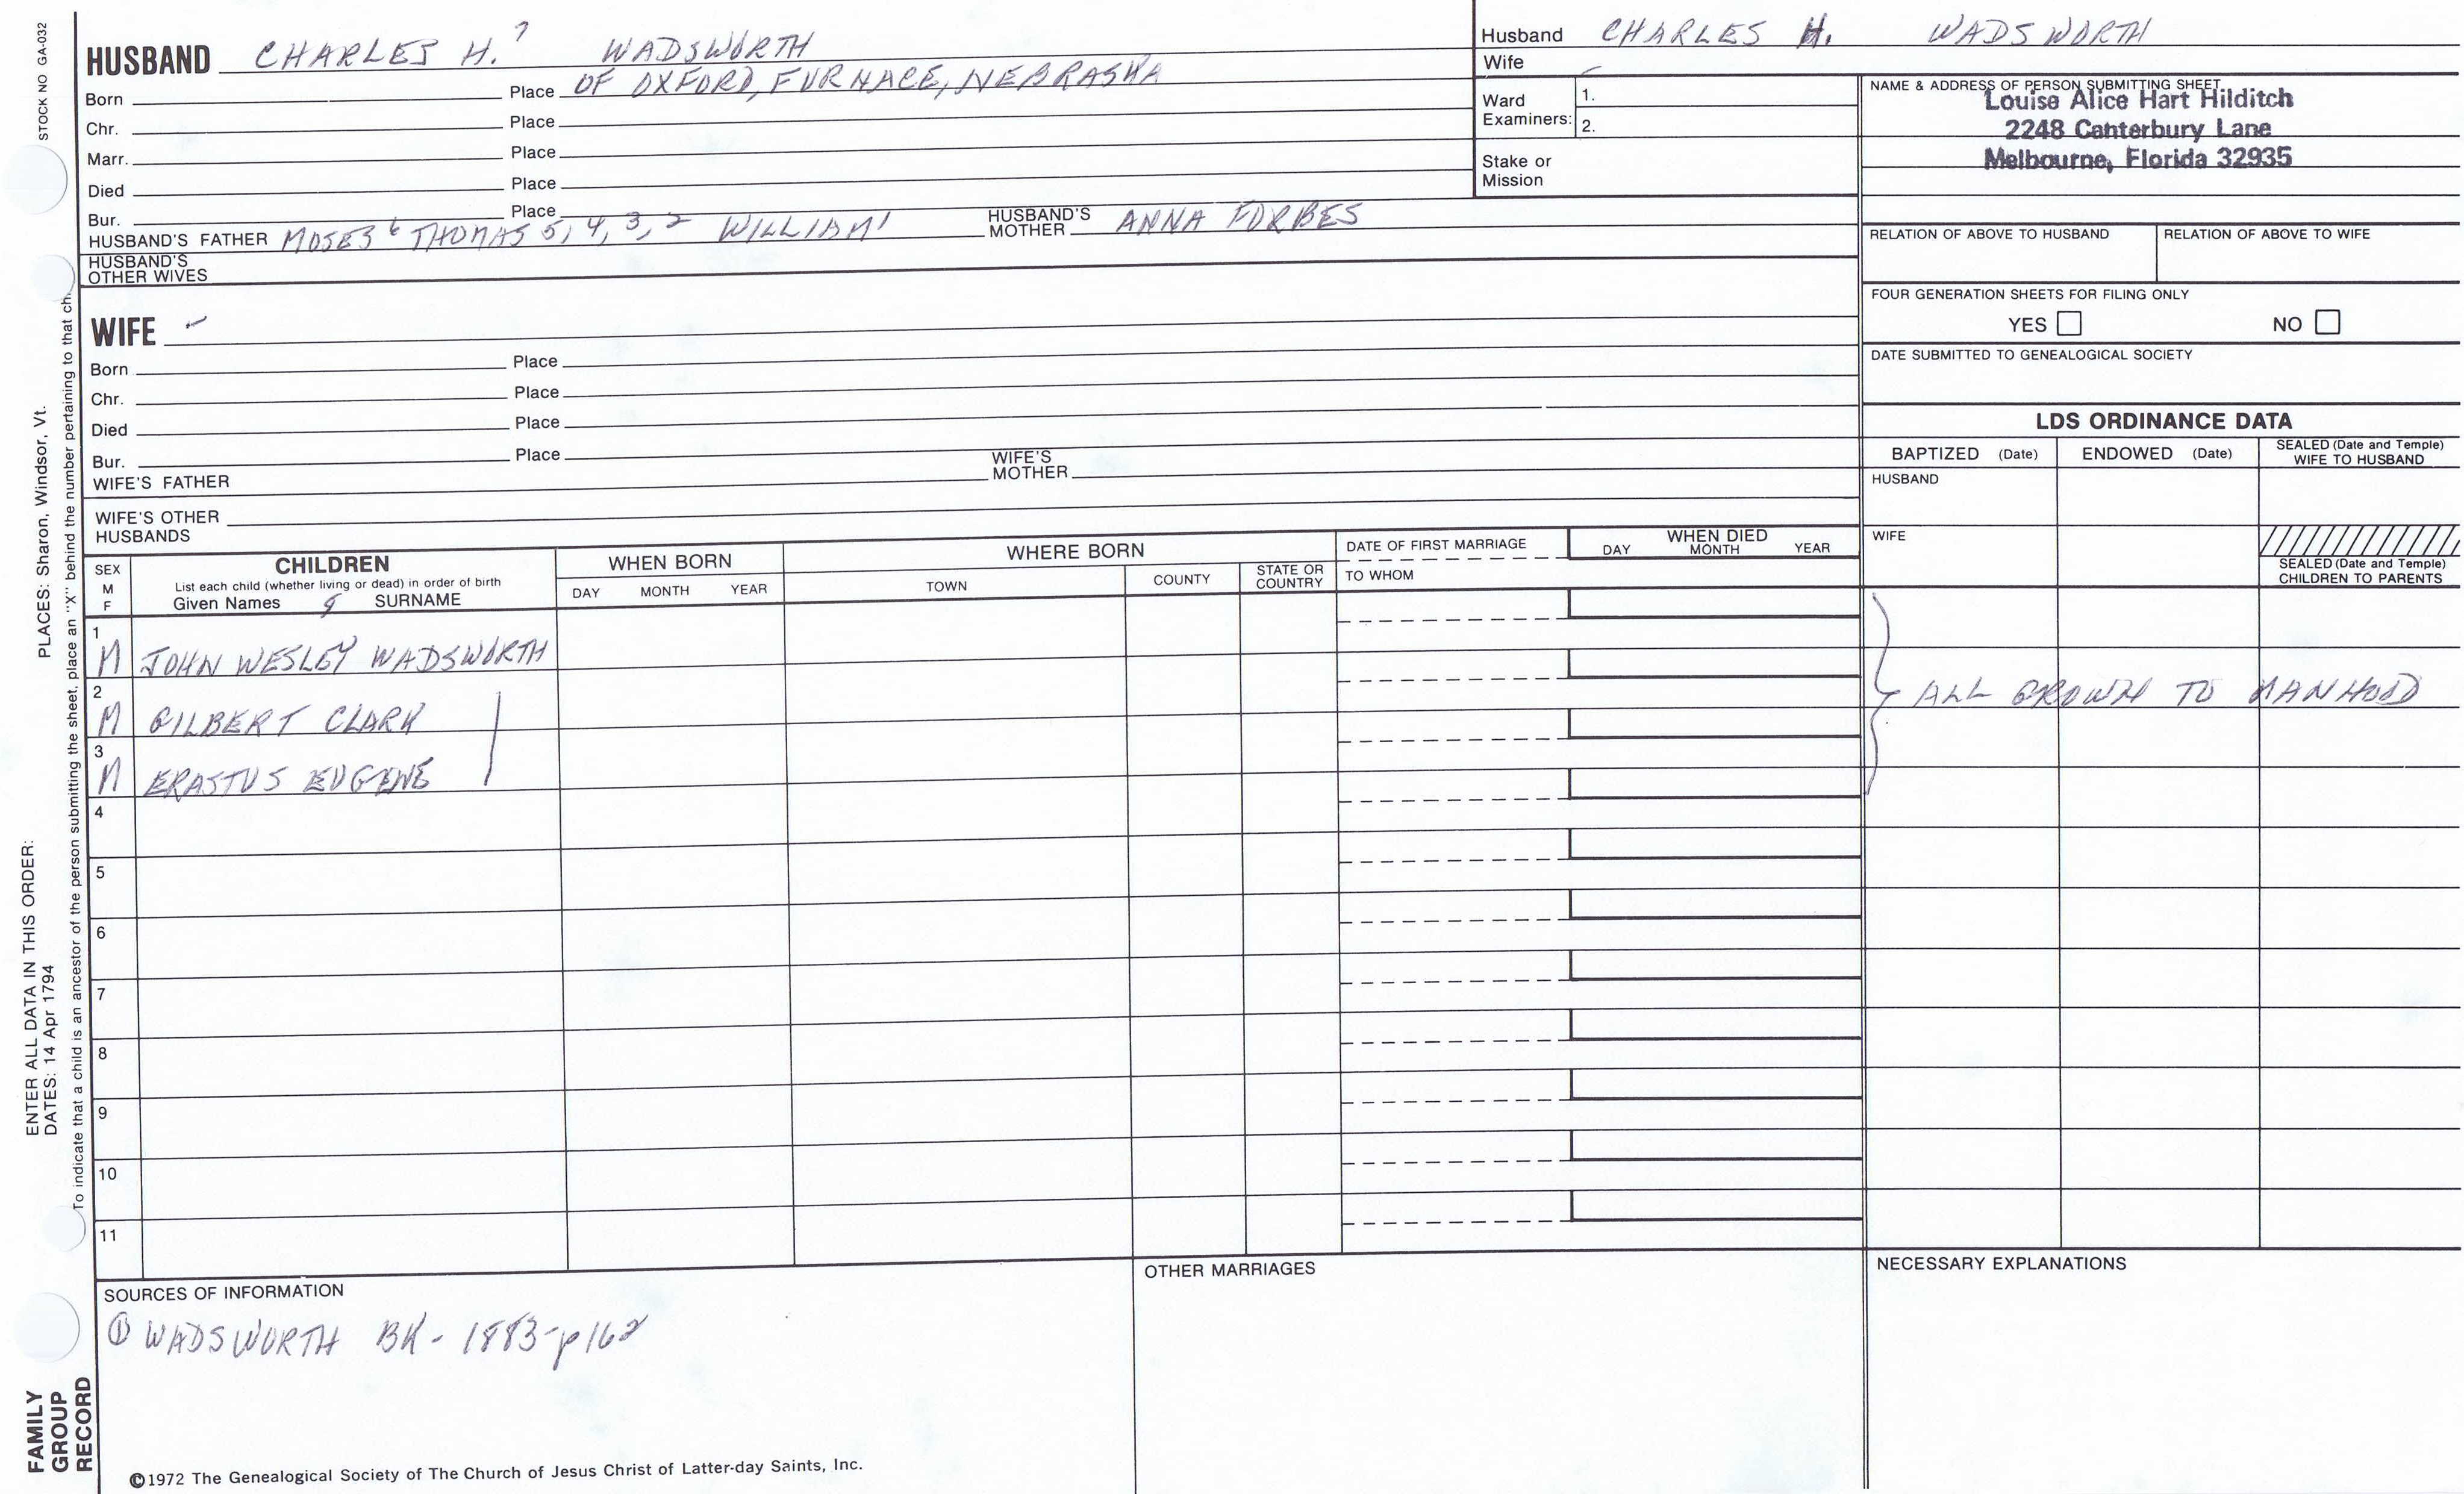 STOCK NO GA-032
HUSBAND CHARLES H.7 WADSWORTH
Born Place OF OXFORD, FURNACE, NEBRASKA
Chr. Place
Marr. Place
Died Place
Bur. Place
HUSBAND'S FATHER MOSES6 THOMAS 5, 4, 3, 2 WILLIAM1 HUSBAND'S MOTHER ANNA FORBES
HUSBAND'S
OTHER WIVES
Husband CHARLES H. WADSWORTH
Wife
Ward
Examiners:
1.
2.
Stake or
Mission
NAME & ADDRESS OF PERSON SUBMITTING SHEET
Louise Alice Hart Hilditch
2248 Canterbury Lane
Melbourne, Florida 32935
RELATION OF ABOVE TO HUSBAND RELATION OF ABOVE TO WIFE
FOUR GENERATION SHEETS FOR FILING ONLY
YES NO
DATE SUBMITTED TO GENEALOGICAL SOCIETY
WIFE -
Born Place
Chr. Place
Died Place
Bur. Place
WIFE'S FATHER WIFE'S MOTHER
WIFE'S OTHER
HUSBANDS
LDS ORDINANCE DATA
BAPTIZED (Date) ENDOWED (Date) SEALED (Date and Temple)
WIFE TO HUSBAND
HUSBAND
WIFE
SEALED (Date and Temple)
CHILDREN TO PARENTS
SEX
M
F
CHILDREN
List each child (whether living or dead) in order of birth
Given Names 8 SURNAME
WHEN BORN
DAY MONTH YEAR
WHERE BORN
TOWN COUNTY STATE OR
COUNTRY
DATE OF FIRST MARRIAGE
TO WHOM
WHEN DIED
DAY MONTH YEAR
1
M JOHN WESLEY WADSWORTH
2
M GILBERT CLARK
3
M ERASTUS EUGENE
ALL GROWN TO MANHOOD
4
5
6
7
8
9
10
11
SOURCES OF INFORMATION
① WADSWORTH BK - 1883-p162
OTHER MARRIAGES
NECESSARY EXPLANATIONS
©1972 The Genealogical Society of The Church of Jesus Christ of Latter-day Saints, Inc.
ENTER ALL DATA IN THIS ORDER:
DATES: 14 Apr 1794
PLACES: Sharon, Windsor, Vt.
To indicate that a child is an ancestor of the person submitting the sheet, place an "X" behind the number pertaining to that ch.
FAMILY
GROUP
RECORD